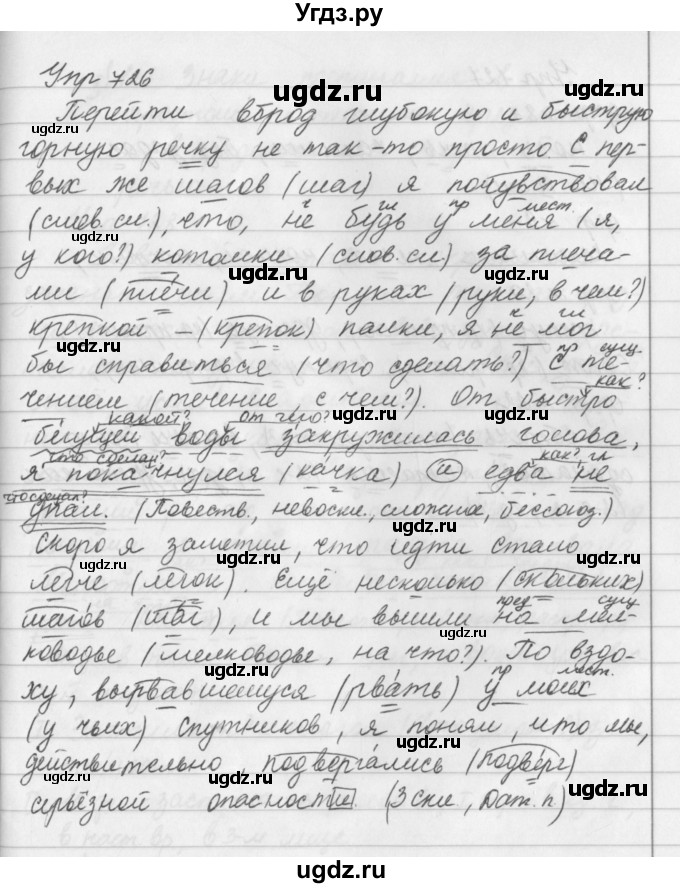 Угдз.ру
Упр 726
Перейти вброд глубокую и быструю
горную речку не так-то просто. С пер-
вых же шагов (шаг) я почувствовал
(слов.сл.), что, не будь у меня (я,
у кого?) котомки (слов.сл.) за плеча-
ми (плечи) и в руках (руки, в чем?)
крепкой – (крепок) палки, я не мог
бы справиться (что сделать?) с те-
чением (течение, с чем?). От быстро
бегущей воды закружилась голова,
я покачнулся (качка) и едва не
упал. (Повеств, невоскл, сложная, бессоюз.)
Скоро я заметил, что идти стало
легче (легок). Ещё несколько (скольких)
шагов (шаг), и мы вышли на мел-
ководье (мелководье, на что?). По вздо-
ху, вырвавшемуся (рвать) у моих
(у чьих) спутников, я понял, что мы,
действительно, подвергались (подверг)
серьёзной опасности. (3 скл, Дат. п)
ugdz.ru